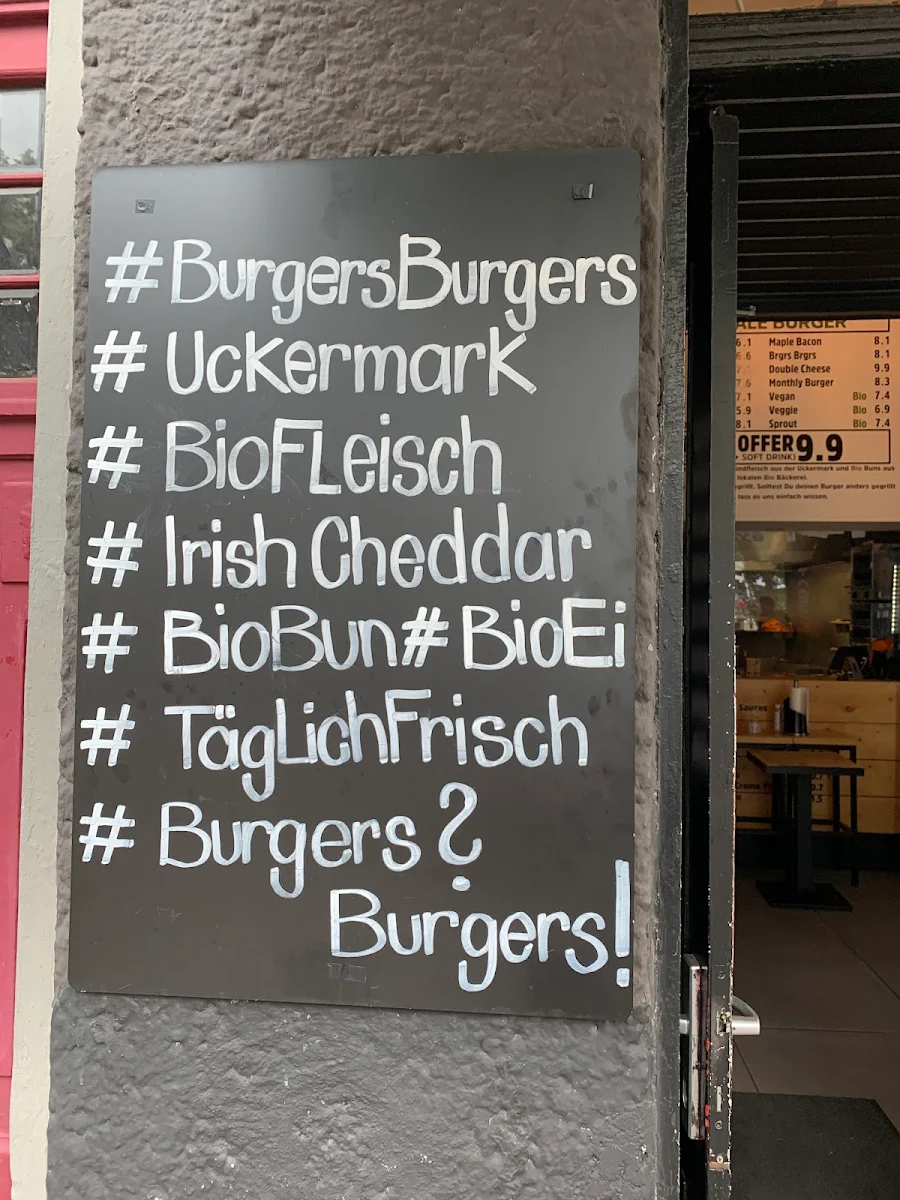 #BurgersBurgers
# Uckermark
# BioFLeisch
# Irish Cheddar
# BioBun#BioEi
# TägLichFrisch
# Burgers?
Burgers!
ALE BURGER
6.1 Maple Bacon 8.1
6.6 Brgrs Brgrs 8.1
Double Cheese 9.9
7.6 Monthly Burger 8.3
7.1 Vegan Bio 7.4
5.9 Veggie Bio 6.9
8.1 Sprout Bio 7.4
OFFER 9.9
SOFT DRINK)
indfleisch aus der Uckermark und Bio Buns aus
lokalen Bio Bäckerei.
grillt. Solltest Du deinen Burger anders gegrillt
lass es uns einfach wissen.
Sauces